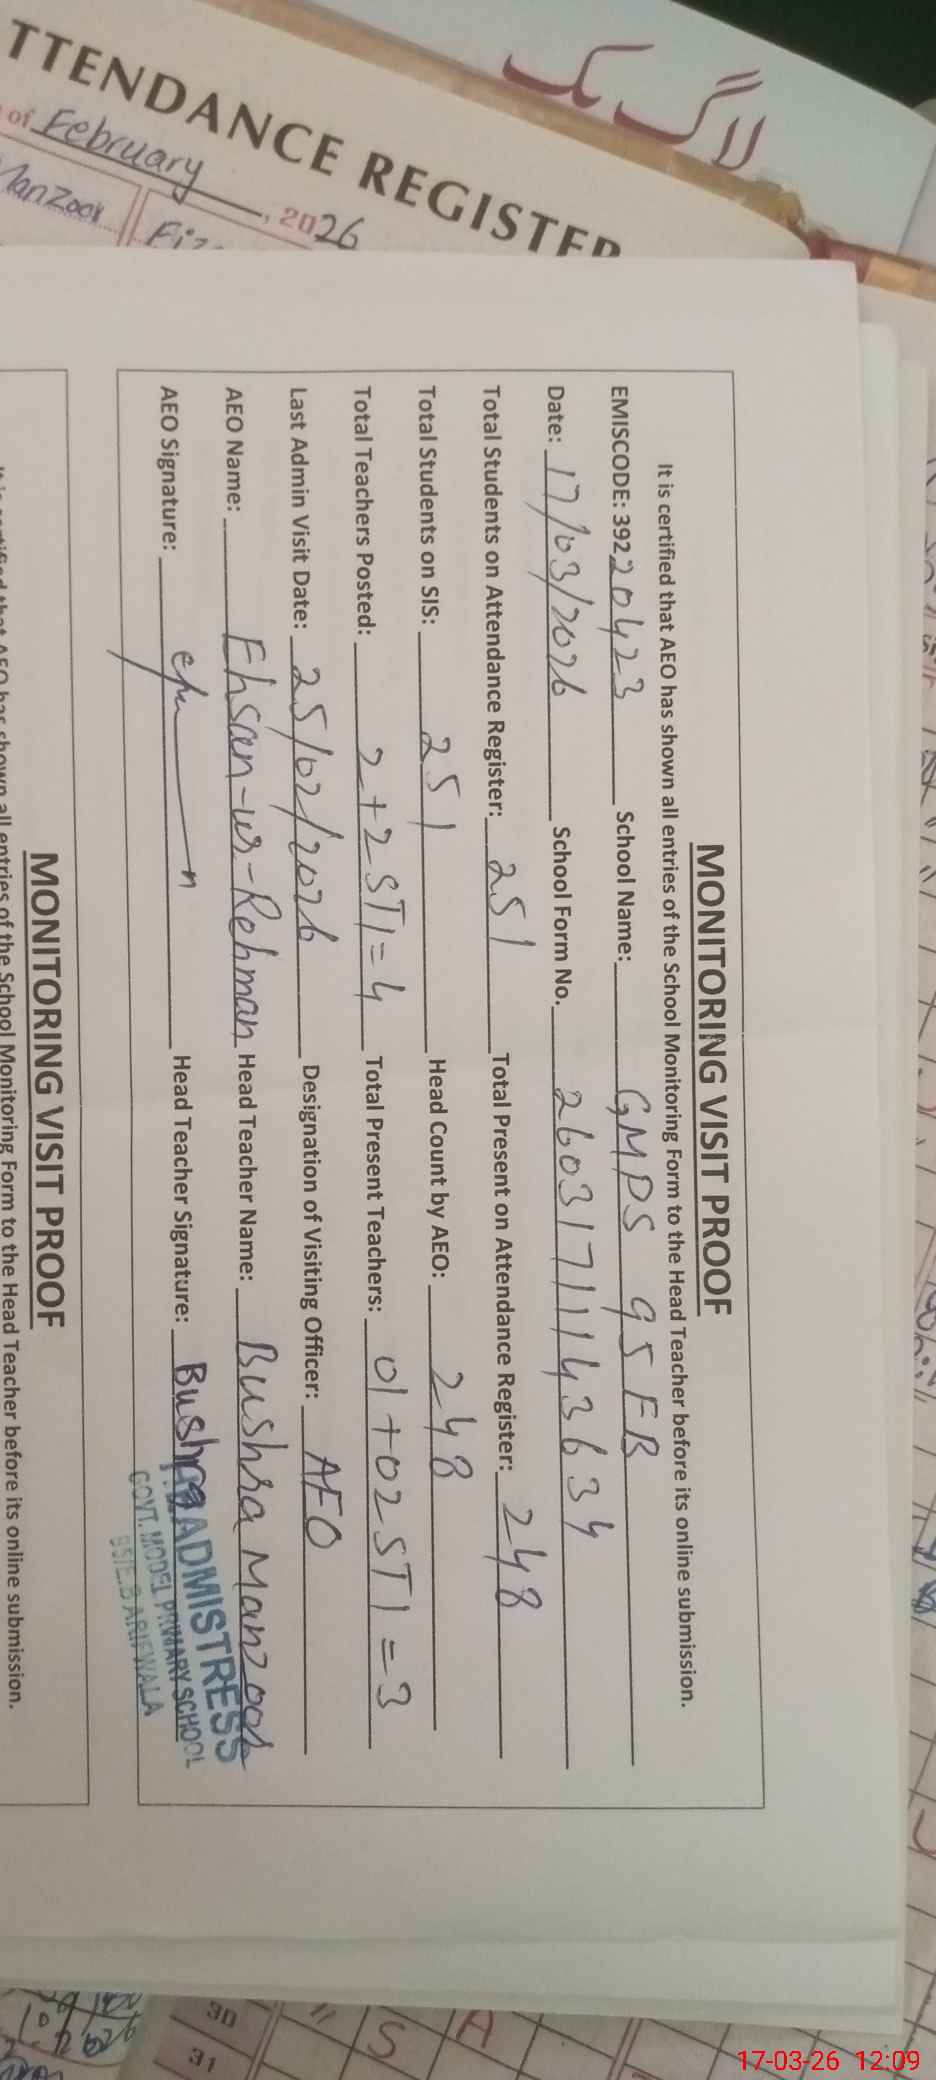 ATTENDANCE REGISTER
of February, 2026
Manzoor
MONITORING VISIT PROOF
It is certified that AEO has shown all entries of the School Monitoring Form to the Head Teacher before its online submission.
EMISCODE: 39220423 School Name: GMPS 95 EB
Date: 17/03/2026 School Form No. 26031711143634
Total Students on Attendance Register: 251 Total Present on Attendance Register: 248
Total Students on SIS: 251 Head Count by AEO: 248
Total Teachers Posted: 2+2 STI=4 Total Present Teachers: 01+02 STI=3
Last Admin Visit Date: 25/02/2026 Designation of Visiting Officer: AEO
AEO Name: Ehsan-ur-Rehman Head Teacher Name: Bushra Manzoor
AEO Signature: Head Teacher Signature: Bushra
ADMISTRESS
GOVT. MODEL PRIMARY SCHOOL
95/E.B ARIFWALA
MONITORING VISIT PROOF
It is certified that AEO has shown all entries of the School Monitoring Form to the Head Teacher before its online submission.
30
31
S
A
17-03-26 12:09